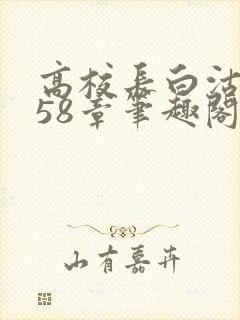 高校长白沽
58章笔趣阁
山有嘉卉